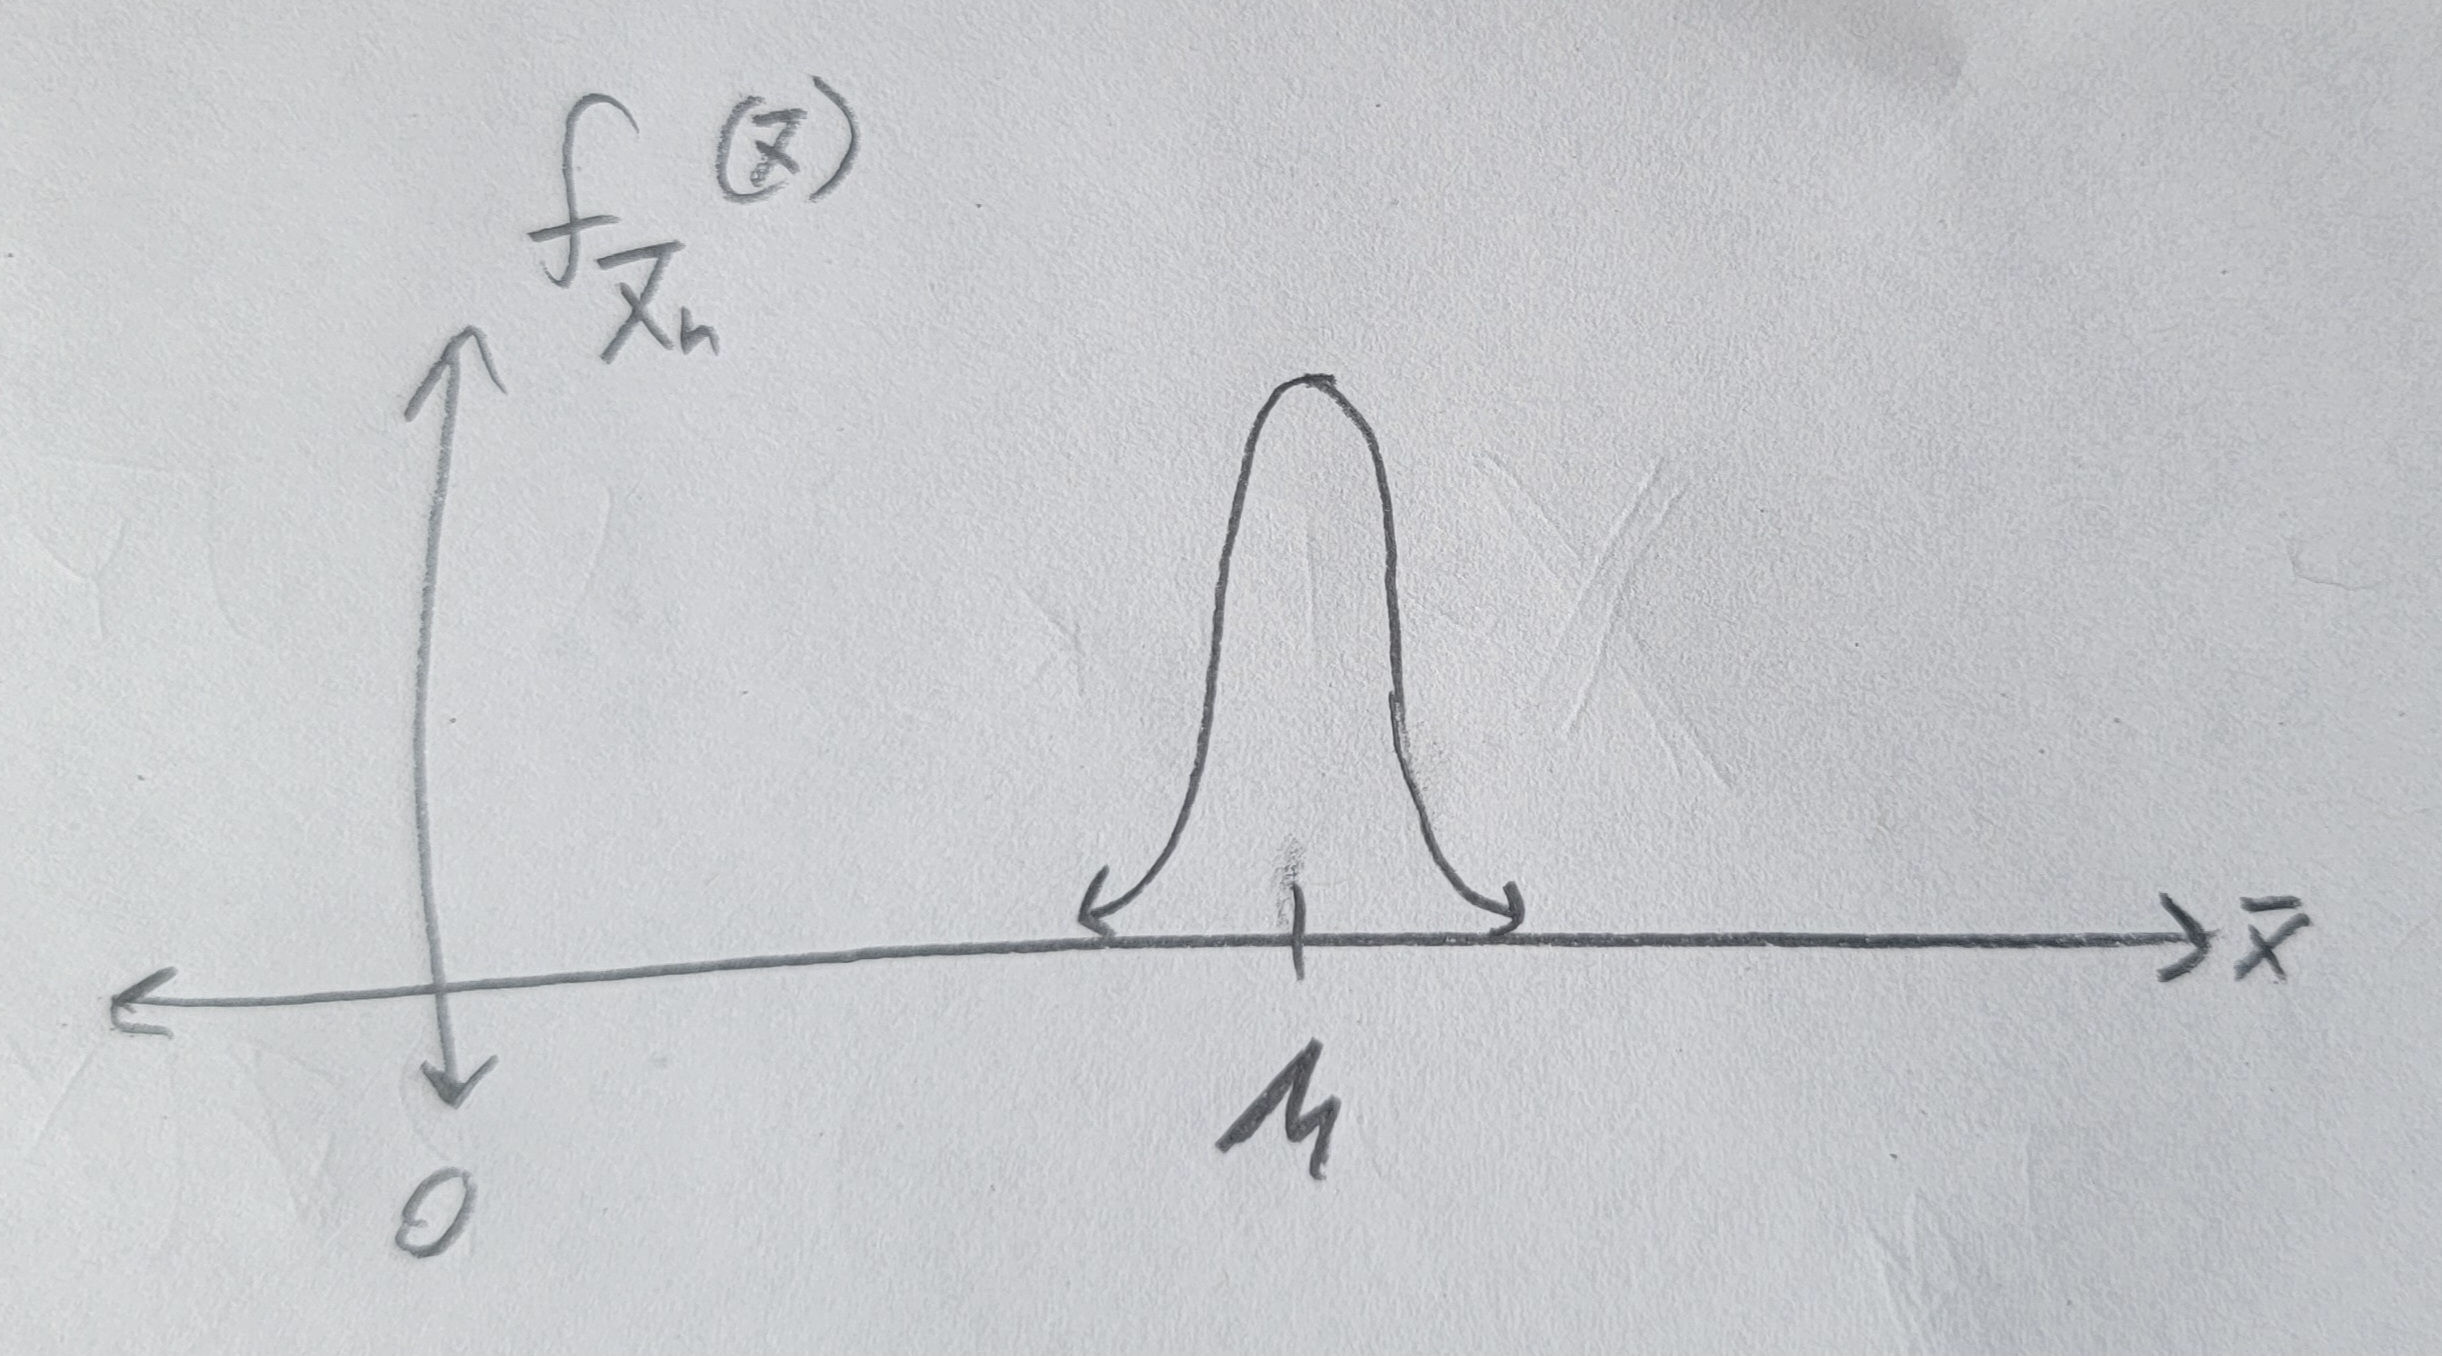 f_X̄ₙ(x̄)
x̄
μ
0